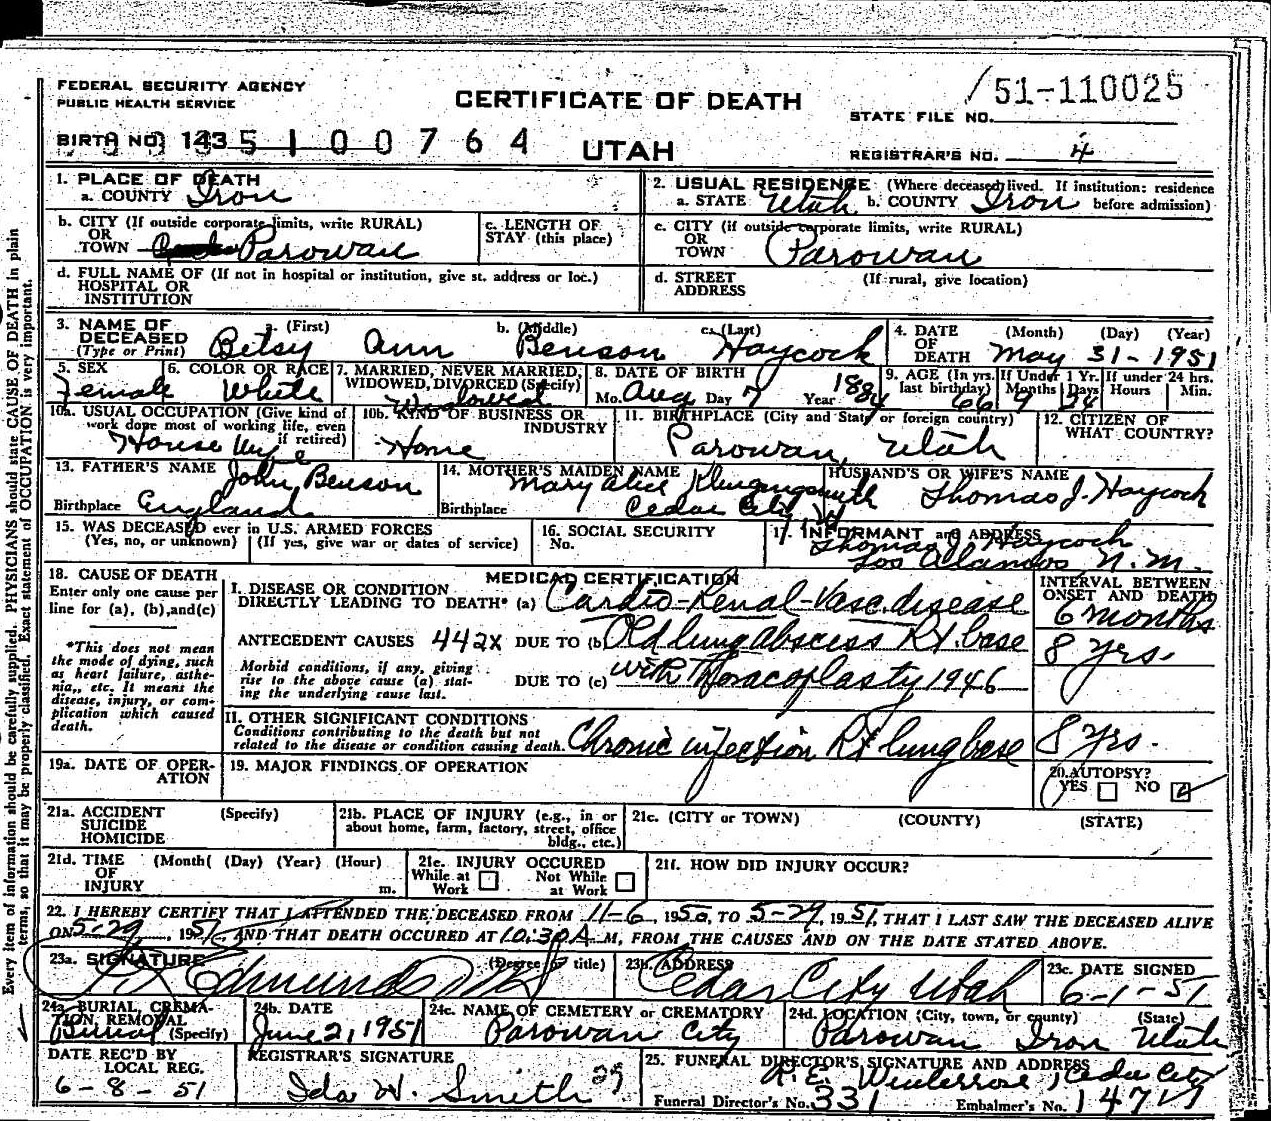 FEDERAL SECURITY AGENCY
PUBLIC HEALTH SERVICE
CERTIFICATE OF DEATH
51-110025
STATE FILE NO.
BIRTH NO. 143 5 1 0 0 7 6 4
UTAH
REGISTRAR'S NO. 4
1. PLACE OF DEATH
a. COUNTY Iron
2. USUAL RESIDENCE (Where deceased lived. If institution: residence
a. STATE Utah b. COUNTY Iron before admission)
b. CITY (If outside corporate limits, write RURAL)
OR
TOWN Parowan
c. LENGTH OF
STAY (this place)
c. CITY (if outside corporate limits, write RURAL)
OR
TOWN Parowan
d. FULL NAME OF (If not in hospital or institution, give st. address or loc.)
HOSPITAL OR
INSTITUTION
d. STREET (If rural, give location)
ADDRESS
3. NAME OF DECEASED (Type or Print)
a. (First) b. (Middle) c. (Last)
Betsy Ann Benson Haycock
4. DATE OF DEATH (Month) (Day) (Year)
May 31-1951
5. SEX
Female
6. COLOR OR RACE
White
7. MARRIED, NEVER MARRIED,
WIDOWED, DIVORCED (Specify)
Widowed
8. DATE OF BIRTH
Mo. Aug Day 7 Year 1884
9. AGE (In yrs. last birthday) 66
If Under 1 Yr. Months 9 Days 24
If under 24 hrs. Hours Min.
10a. USUAL OCCUPATION (Give kind of
work done most of working life, even
if retired)
House Wife
10b. KIND OF BUSINESS OR
INDUSTRY
Home
11. BIRTHPLACE (City and State or foreign country)
Parowan, Utah
12. CITIZEN OF
WHAT COUNTRY?
13. FATHER'S NAME
John Benson
Birthplace England
14. MOTHER'S MAIDEN NAME
Mary Alice Klingensmith
Birthplace Cedar City
HUSBAND'S OR WIFE'S NAME
Thomas J. Haycock
15. WAS DECEASED ever in U.S. ARMED FORCES
(Yes, no, or unknown) (If yes, give war or dates of service)
16. SOCIAL SECURITY
No.
17. INFORMANT and ADDRESS
Thomas J Haycock
Los Alamos N. M.
18. CAUSE OF DEATH
Enter only one cause per
line for (a), (b), and (c)
*This does not mean
the mode of dying, such
as heart failure, asthe-
nia, etc. It means the
disease, injury, or com-
plication which caused
death.
MEDICAL CERTIFICATION
INTERVAL BETWEEN
ONSET AND DEATH
I. DISEASE OR CONDITION
DIRECTLY LEADING TO DEATH* (a) Cardio-Renal-Vasc. disease 6 months
ANTECEDENT CAUSES 442X DUE TO (b) Old lung abscess Rt. base 8 yrs.
Morbid conditions, if any, giving
rise to the above cause (a) stat-
ing the underlying cause last.
DUE TO (c) with Thoracoplasty, 1946
II. OTHER SIGNIFICANT CONDITIONS
Conditions contributing to the death but not
related to the disease or condition causing death. Chronic infection Rt lung base 8 yrs.
19a. DATE OF OPER-
ATION
19. MAJOR FINDINGS OF OPERATION
20. AUTOPSY?
YES NO
21a. ACCIDENT (Specify)
SUICIDE
HOMICIDE
21b. PLACE OF INJURY (e.g., in or
about home, farm, factory, street, office
bldg., etc.)
21c. (CITY or TOWN) (COUNTY) (STATE)
21d. TIME (Month( (Day) (Year) (Hour)
OF
INJURY m.
21e. INJURY OCCURED
While at Work Not While at Work
21f. HOW DID INJURY OCCUR?
22. I HEREBY CERTIFY THAT I ATTENDED THE DECEASED FROM 11-6, 1950, TO 5-29, 1951, THAT I LAST SAW THE DECEASED ALIVE
ON 5-29, 1951, AND THAT DEATH OCCURED AT 10:30 A M, FROM THE CAUSES AND ON THE DATE STATED ABOVE.
23a. SIGNATURE (Degree or title)
Edmunds MD
23b. ADDRESS
Cedar City Utah
23c. DATE SIGNED
6-1-51
24a. BURIAL, CREMA-
TION, REMOVAL
Burial (Specify)
24b. DATE
June 2, 1951
24c. NAME OF CEMETERY or CREMATORY
Parowan City
24d. LOCATION (City, town, or county) (State)
Parowan Iron Utah
DATE REC'D BY
LOCAL REG.
6-8-51
REGISTRAR'S SIGNATURE
Ida H. Smith
25. FUNERAL DIRECTOR'S SIGNATURE AND ADDRESS
Cedar City
Funeral Director's No. 331 Embalmer's No.
Every item of information should be carefully supplied. PHYSICIANS should state CAUSE OF DEATH in plain
terms, so that it may be properly classified. Exact statement of OCCUPATION is very important.